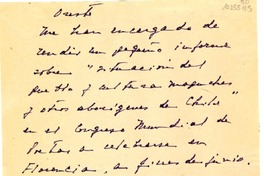 Oreste
me han encargado de
rendir un pequeño informe
sobre "situación del
pueblo y cultura mapuches
y otros aborígenes de Chile"
en el Congreso Mundial de
Poetas a celebrarse en
Florencia, a fines de junio.